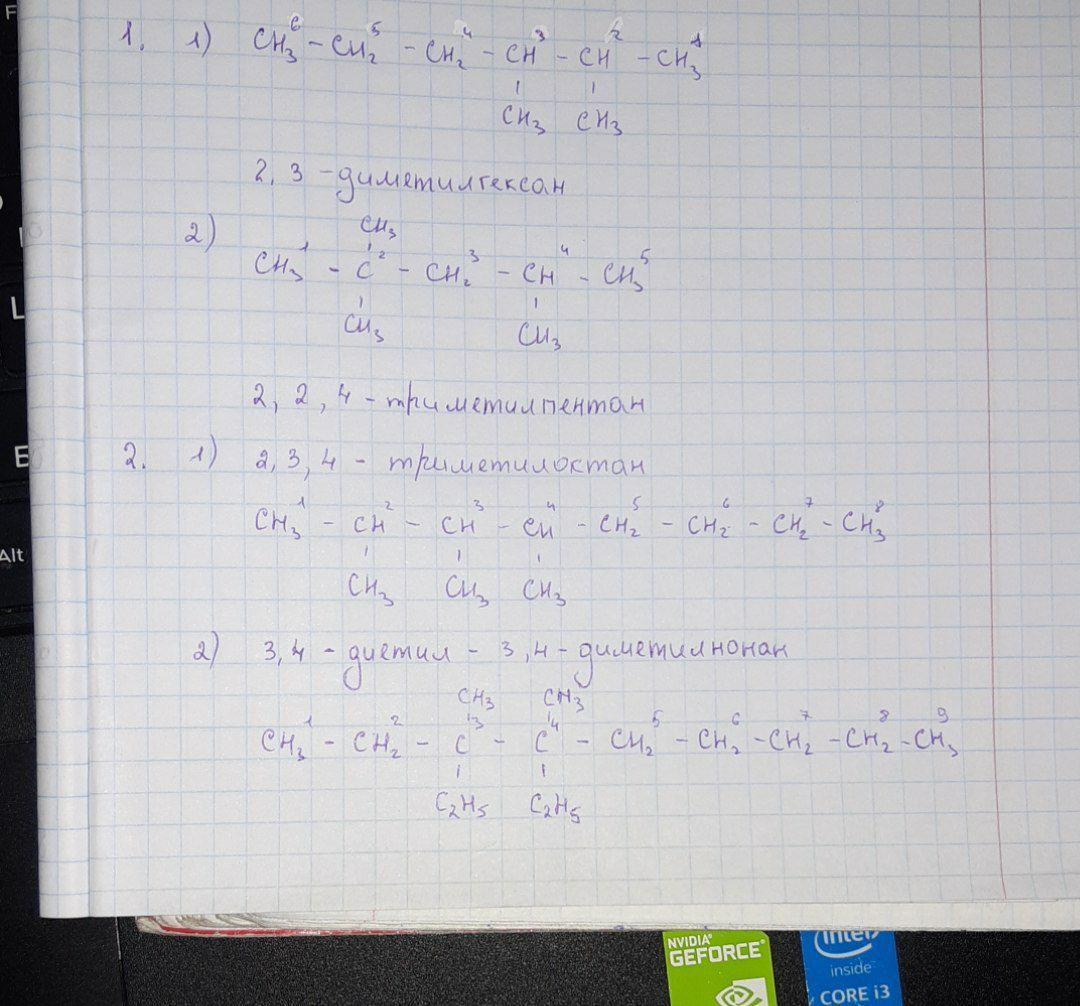 1. 1) CH₃⁶ - CH₂⁵ - CH₂⁴ - CH³ - CH² - CH₃¹
CH₃ CH₃
2, 3 - диметилгексан
CH₃
2) CH₃¹ - C² - CH₂³ - CH⁴ - CH₃⁵
CH₃ CH₃
2, 2, 4 - триметилпентан
2. 1) 2, 3, 4 - триметилоктан
CH₃¹ - CH² - CH³ - CH⁴ - CH₂⁵ - CH₂⁶ - CH₂⁷ - CH₃⁸
CH₃ CH₃ CH₃
2) 3,4 - диетил - 3,4 - диметилнонан
CH₃ CH₃
CH₃¹ - CH₂² - C³ - C⁴ - CH₂⁵ - CH₂⁶ - CH₂⁷ - CH₂⁸ - CH₃⁹
C₂H₅ C₂H₅
F
L
E
Alt
NVIDIA
GEFORCE
intel
inside
CORE i3